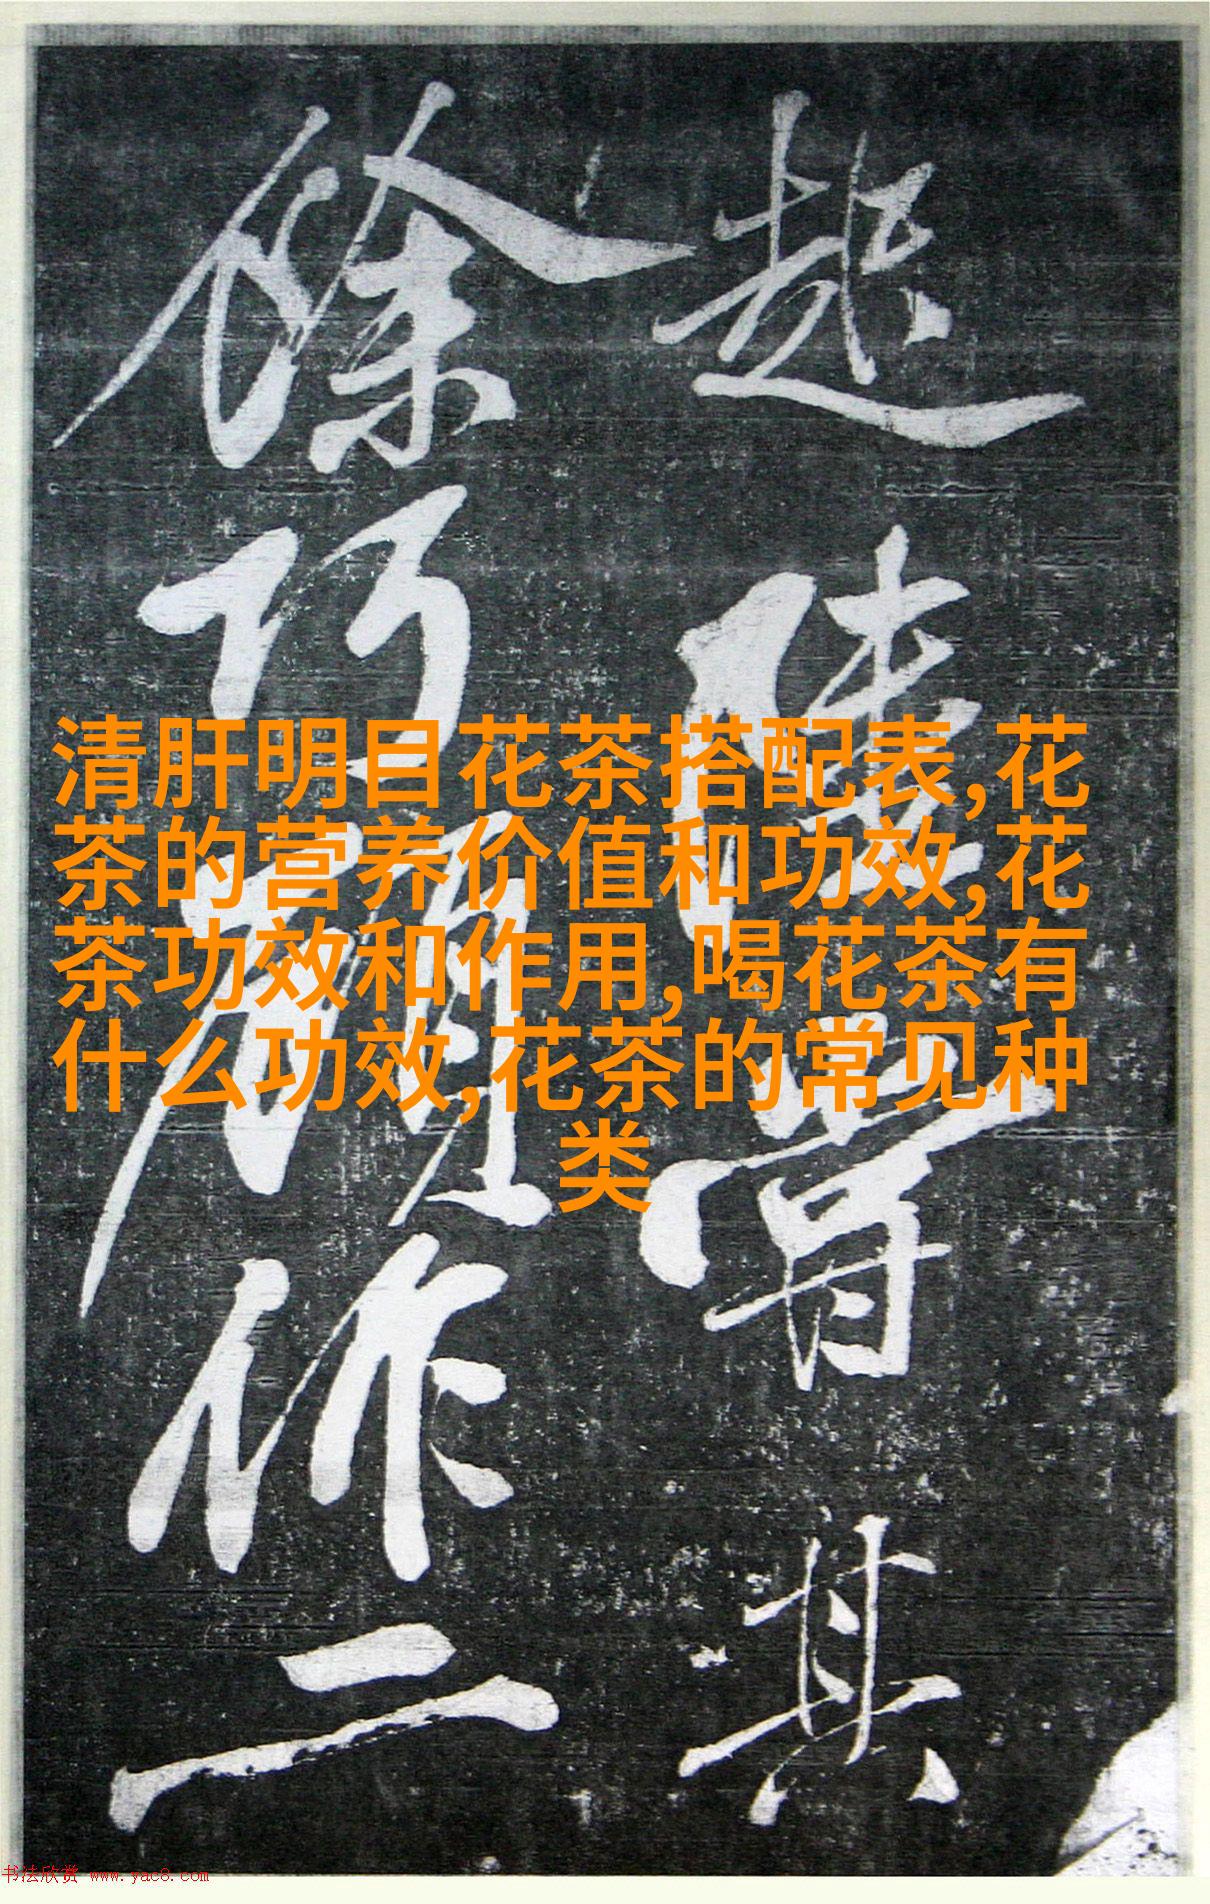 清肝明目花茶搭配表,花
茶的营养价值和功效,花
茶功效和作用,喝花茶有
什么功效,花茶的常见种
类
其
巧顧作二
书法欣赏 www.yac8.com